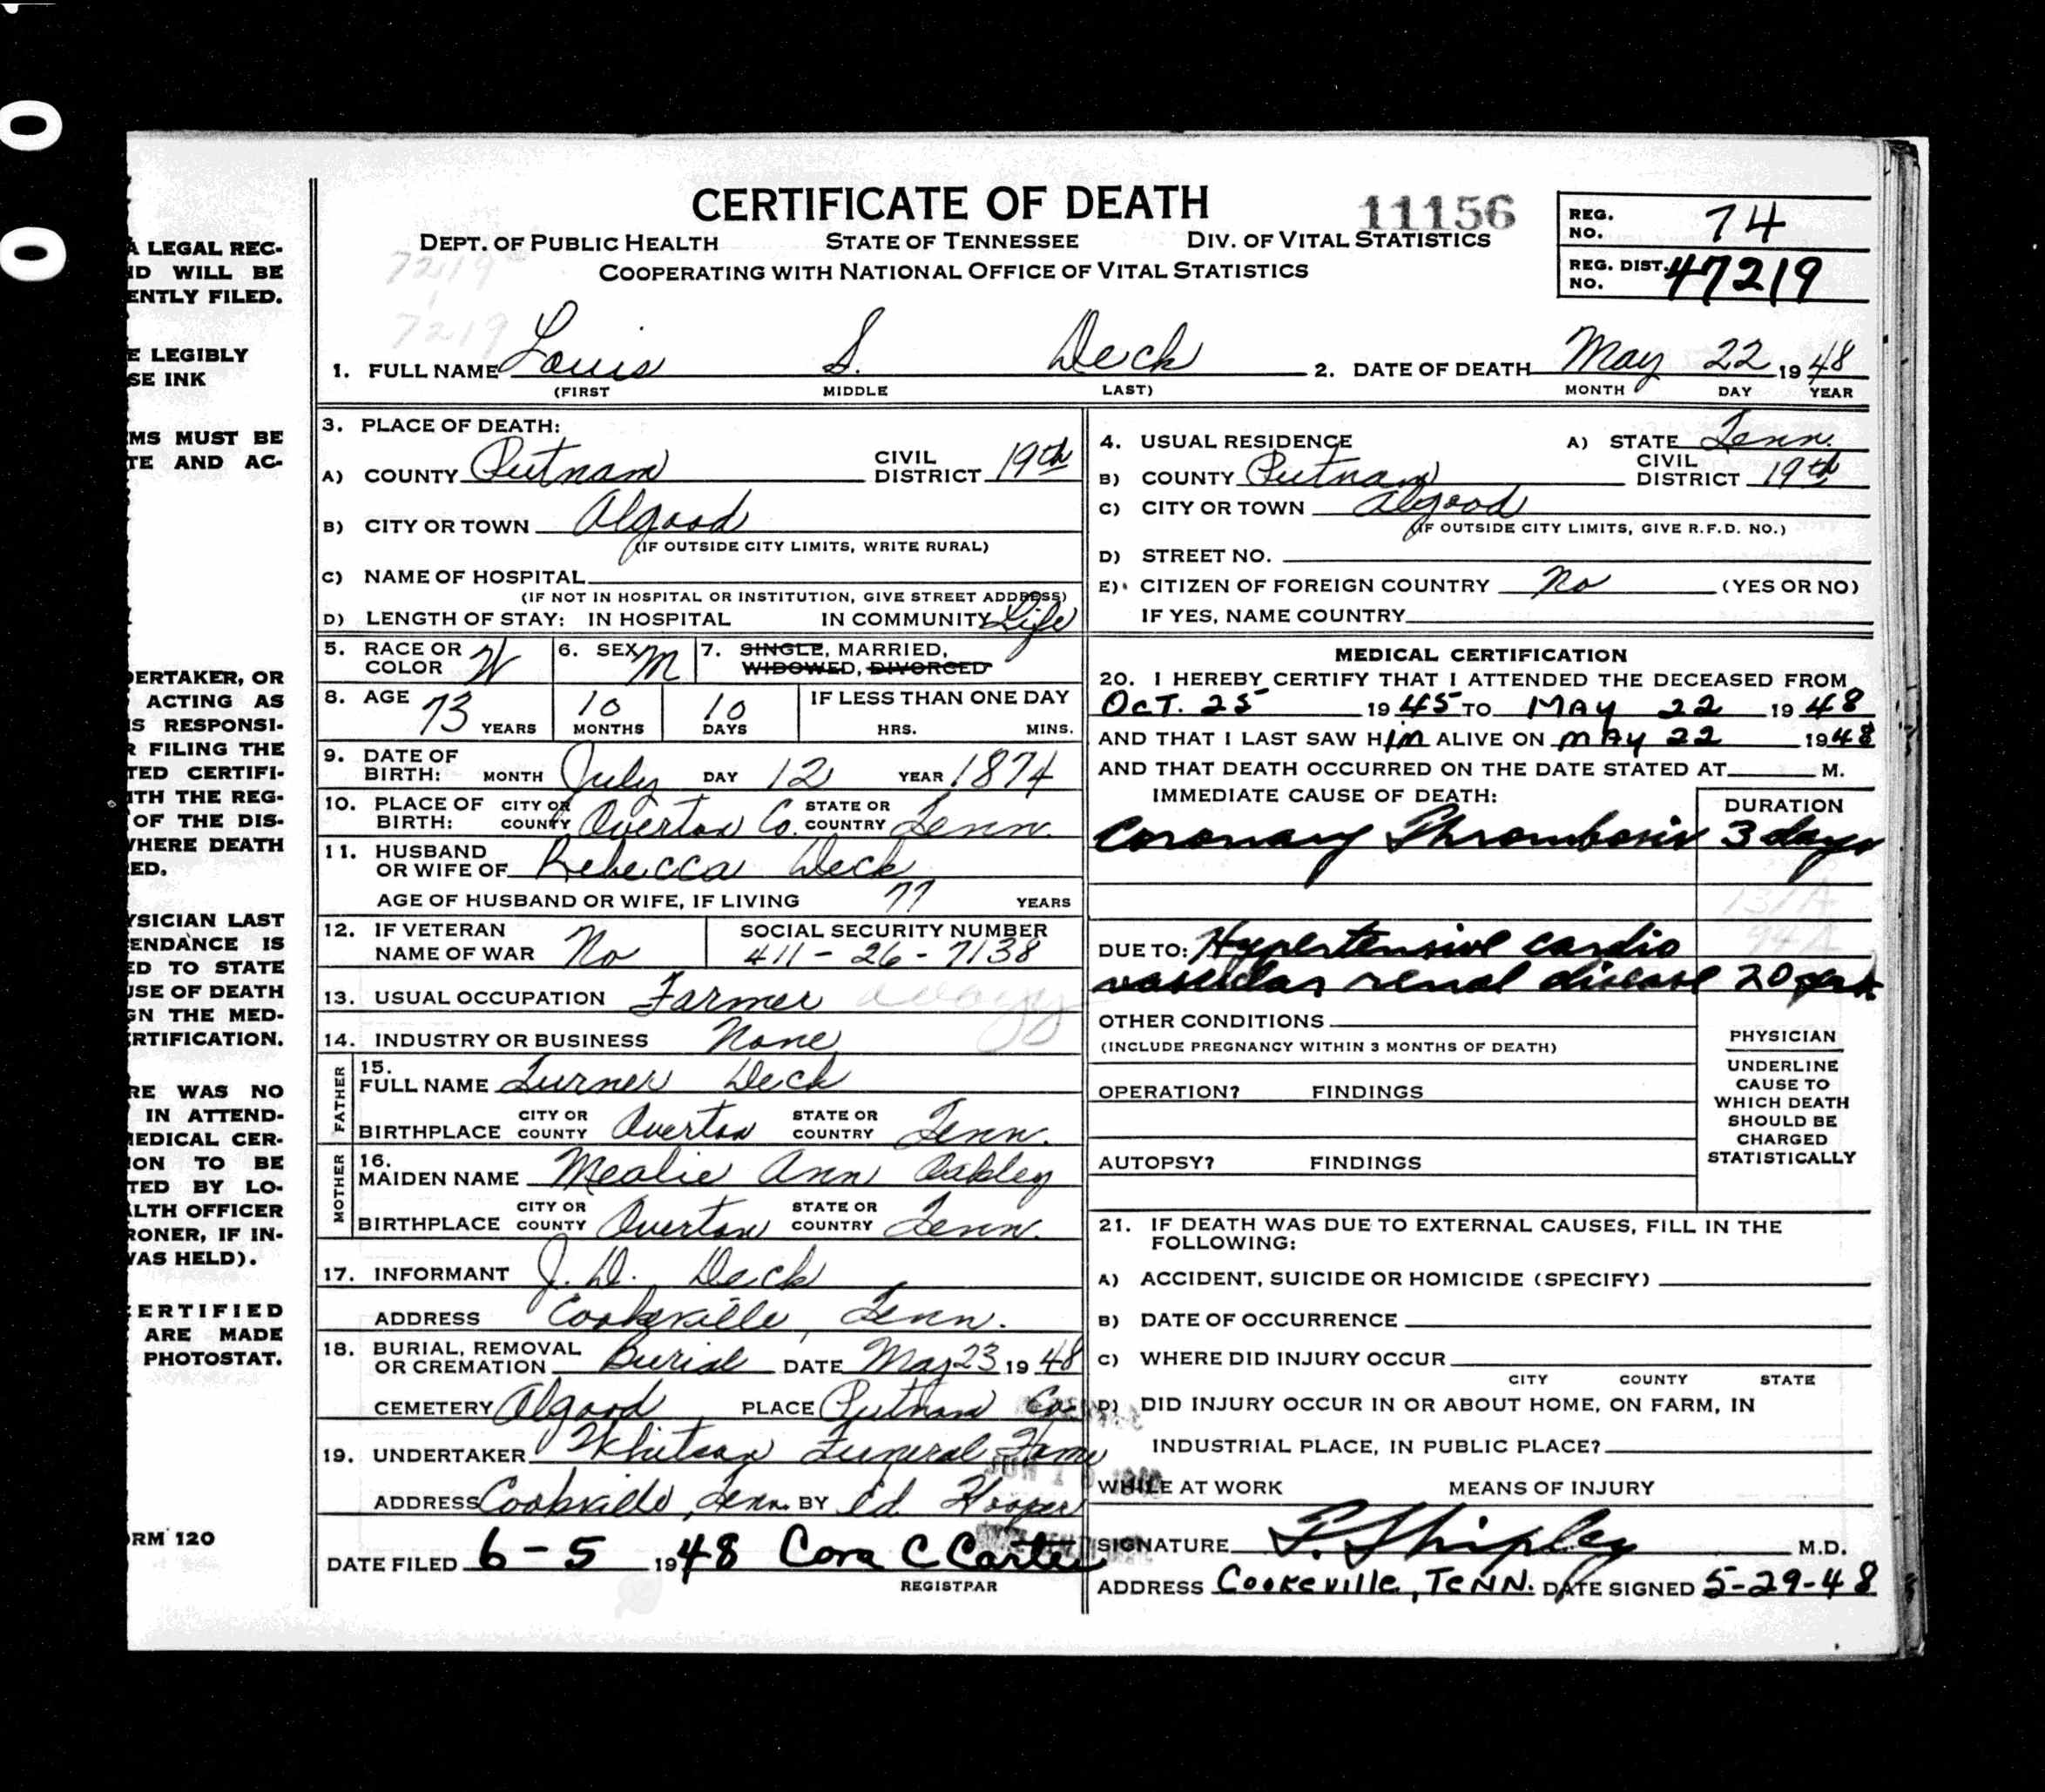 CERTIFICATE OF DEATH
11156
REG. NO. 74
DEPT. OF PUBLIC HEALTH STATE OF TENNESSEE DIV. OF VITAL STATISTICS
COOPERATING WITH NATIONAL OFFICE OF VITAL STATISTICS
REG. DIST. NO. 47219
7219
7219
1. FULL NAME Louis S. Deck 2. DATE OF DEATH May 22 1948
(FIRST MIDDLE LAST) MONTH DAY YEAR
3. PLACE OF DEATH:
A) COUNTY Putnam CIVIL DISTRICT 19th
B) CITY OR TOWN Algood
(IF OUTSIDE CITY LIMITS, WRITE RURAL)
C) NAME OF HOSPITAL
(IF NOT IN HOSPITAL OR INSTITUTION, GIVE STREET ADDRESS)
D) LENGTH OF STAY: IN HOSPITAL IN COMMUNITY Life
4. USUAL RESIDENCE A) STATE Tenn.
B) COUNTY Putnam CIVIL DISTRICT 19th
C) CITY OR TOWN Algood
(IF OUTSIDE CITY LIMITS, GIVE R.F.D. NO.)
D) STREET NO.
E) CITIZEN OF FOREIGN COUNTRY No (YES OR NO)
IF YES, NAME COUNTRY
5. RACE OR COLOR W 6. SEX M 7. SINGLE, MARRIED,
WIDOWED, DIVORCED
8. AGE 73 YEARS 10 MONTHS 10 DAYS IF LESS THAN ONE DAY
HRS. MINS.
9. DATE OF BIRTH: MONTH July DAY 12 YEAR 1874
10. PLACE OF BIRTH: CITY OR COUNTY Overton Co. STATE OR COUNTRY Tenn.
11. HUSBAND OR WIFE OF Rebecca Deck
AGE OF HUSBAND OR WIFE, IF LIVING 77 YEARS
12. IF VETERAN NAME OF WAR No SOCIAL SECURITY NUMBER
411-26-7138
13. USUAL OCCUPATION Farmer
14. INDUSTRY OR BUSINESS None
FATHER
15. FULL NAME Turner Deck
BIRTHPLACE CITY OR COUNTY Overton STATE OR COUNTRY Tenn.
MOTHER
16. MAIDEN NAME Mealie Ann Oakley
BIRTHPLACE CITY OR COUNTY Overton STATE OR COUNTRY Tenn.
17. INFORMANT J. D. Deck
ADDRESS Cookeville, Tenn.
18. BURIAL, REMOVAL OR CREMATION Burial DATE May 23 1948
CEMETERY Algood PLACE Putnam Co.
19. UNDERTAKER Whitson Funeral Home
ADDRESS Cookville, Tenn. BY Ed. Hooper
DATE FILED 6-5 1948 Cora C Carter
REGISTRAR
MEDICAL CERTIFICATION
20. I HEREBY CERTIFY THAT I ATTENDED THE DECEASED FROM
OCT. 25 1945 TO MAY 22 1948
AND THAT I LAST SAW HIM ALIVE ON MAY 22 1948
AND THAT DEATH OCCURRED ON THE DATE STATED AT M.
IMMEDIATE CAUSE OF DEATH: DURATION
Coronary Thrombosis 3 days
131A
94A
DUE TO: Hypertensive cardio
vascular renal disease 20 yrs.
OTHER CONDITIONS
(INCLUDE PREGNANCY WITHIN 3 MONTHS OF DEATH)
OPERATION? FINDINGS
AUTOPSY? FINDINGS
PHYSICIAN
UNDERLINE
CAUSE TO
WHICH DEATH
SHOULD BE
CHARGED
STATISTICALLY
21. IF DEATH WAS DUE TO EXTERNAL CAUSES, FILL IN THE
FOLLOWING:
A) ACCIDENT, SUICIDE OR HOMICIDE (SPECIFY)
B) DATE OF OCCURRENCE
C) WHERE DID INJURY OCCUR
CITY COUNTY STATE
D) DID INJURY OCCUR IN OR ABOUT HOME, ON FARM, IN
INDUSTRIAL PLACE, IN PUBLIC PLACE?
WHILE AT WORK MEANS OF INJURY
SIGNATURE T. Shipley M.D.
ADDRESS Cookeville, Tenn. DATE SIGNED 5-29-48
A LEGAL REC-
ID WILL BE
ENTLY FILED.
E LEGIBLY
SE INK
MS MUST BE
TE AND AC-
DERTAKER, OR
ACTING AS
IS RESPONSI-
R FILING THE
TED CERTIFI-
ITH THE REG-
OF THE DIS-
VHERE DEATH
ED.
YSICIAN LAST
ENDANCE IS
ED TO STATE
USE OF DEATH
GN THE MED-
ERTIFICATION.
RE WAS NO
IN ATTEND-
MEDICAL CER-
ION TO BE
TED BY LO-
LTH OFFICER
RONER, IF IN-
VAS HELD).
CERTIFIED
ARE MADE
PHOTOSTAT.
RM 120